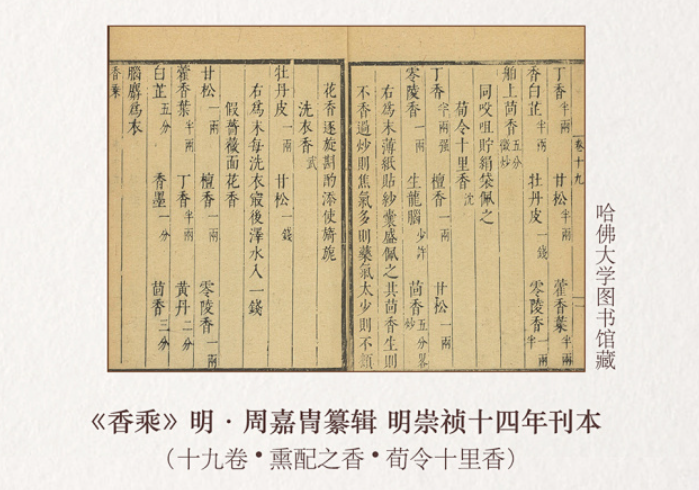 卷十九
丁香半兩 甘松半兩 藿香葉半兩
香白芷半兩 牡丹皮一錢 零陵香一兩半
舶上茴香五分微炒
同咬咀貯絹袋佩之
荀令十里香 沈
丁香半兩强 檀香一兩 甘松一兩
零陵香一兩 生龍腦少許 茴香五分畧炒
右爲末薄紙貼紗囊盛佩之其茴香生則
不香過炒則焦氣多則藥氣太少則不類
花香逐旋斟酌添使旖旎
洗衣香 武
牡丹皮一兩 甘松一錢
右爲末每洗衣最後澤水入一錢
假薔薇面花香
甘松一兩 檀香一兩 零陵香一兩
藿香葉半兩 丁香半兩 黄丹二分
白芷五分 香墨一分 茴香三分
腦麝爲衣
香乘
哈佛大学图书馆藏
《香乘》明·周嘉胄纂辑 明崇祯十四年刊本
（十九卷•熏配之香•荀令十里香）